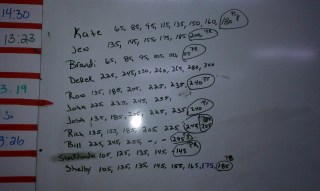 14:30
13:23
3.19
3:26
Kate 65, 85, 95, 115, 135, 150, 160, 180 PR
Jen 135, 145, 155, 175, 185, 200 PR
Brandi 65, 85, 95, 105
Derek 225, 245, 250, 260, 265, 280, 300
Ron 135, 185, 205, 225, 235, 240 PR
John 225, 235, 245, 255,
Josh 135, 185, 205, 225, 235, 240 PR
Rich 135, 155, 185, 205, 225, 245
Bill 225, 245, 205 - , -
105, 125, 135, 145, 145 PR
Shelby 105, 125, 135, 145, 155, 165, 175, 185 PR